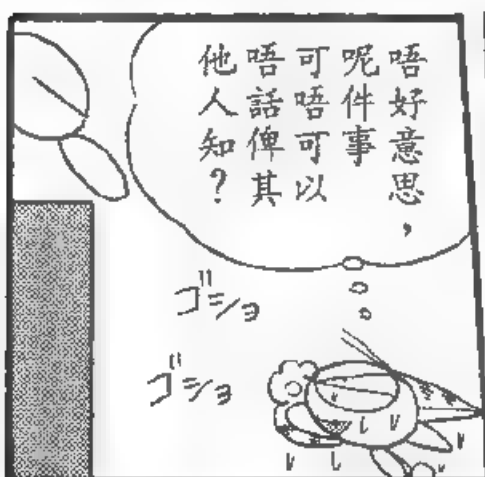 唔好意思，
呢件事
可唔可以
唔話俾其
他人知？
ゴショ
ゴショ